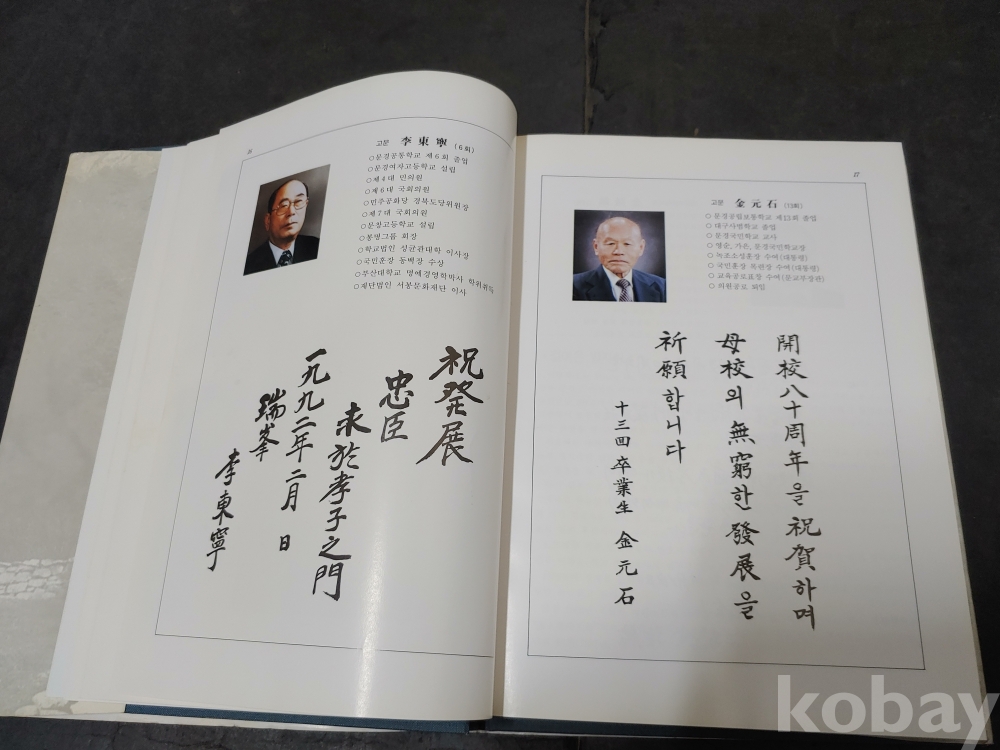 고문 李東寧 (6회)
○문경공동학교 제6회 졸업
○문경여자고등학교 설립
○제4대 민의원
○제6대 국회의원
○민주공화당 경북도당위원장
○제7대 국회의원
○문창고등학교 설립
○봉명그룹 회장
○학교법인 성균관대학 이사장
○국민훈장 동백장 수상
○부산대학교 명예경영학박사 학위취득
○재단법인 서봉문화재단 이사
祝發展
忠臣
求於孝子之門
一九九二年 二月 日
瑞峯
李東寧
27
고문 金元石 (13회)
○문경공립보통학교 제13회 졸업
○대구사범학교 졸업
○문경국민학교 교사
○영순, 가은, 문경국민학교장
○녹조소성훈장 수여(대통령)
○국민훈장 목련장 수여(대통령)
○교육공로표창 수여(문교부장관)
○의원공로 퇴임
開校八十周年을 祝賀하며
母校의 無窮한 發展을
祈願합니다
十三回 卒業生 金元石
kobay